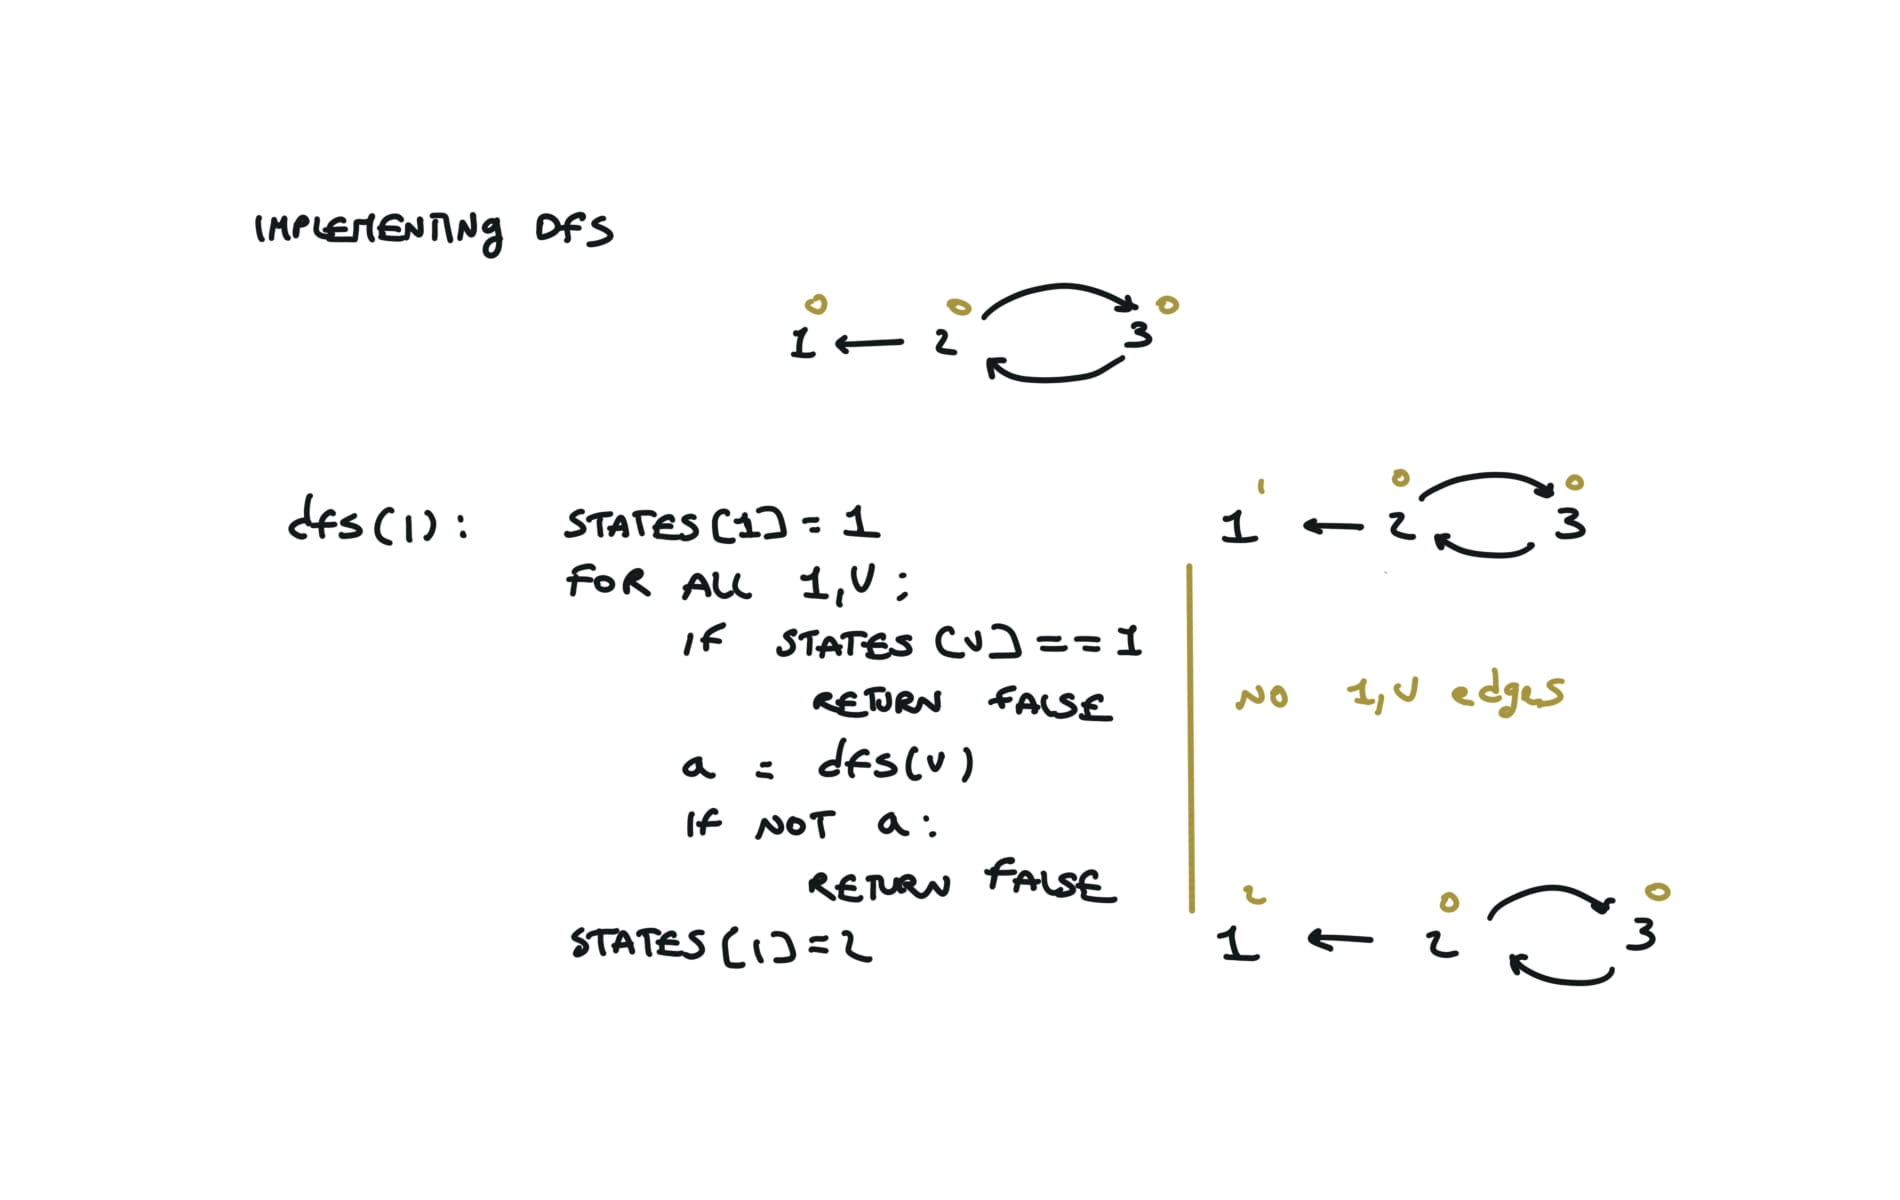 IMPLEMENTING DFS
0 0 0
1 ← 2 3
dfs(1): STATES[1] = 1
FOR ALL 1,V:
IF STATES[V] == 1
RETURN FALSE
a = dfs(v)
IF NOT a:
RETURN FALSE
STATES[1] = 2
1 0 0
1 ← 2 3
NO 1,V edges
2 0 0
1 ← 2 3